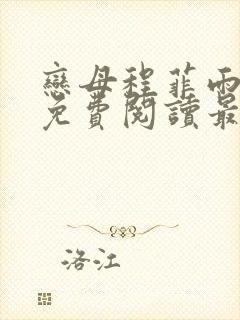 戀母程菲雨
免費閱讀最
洛江